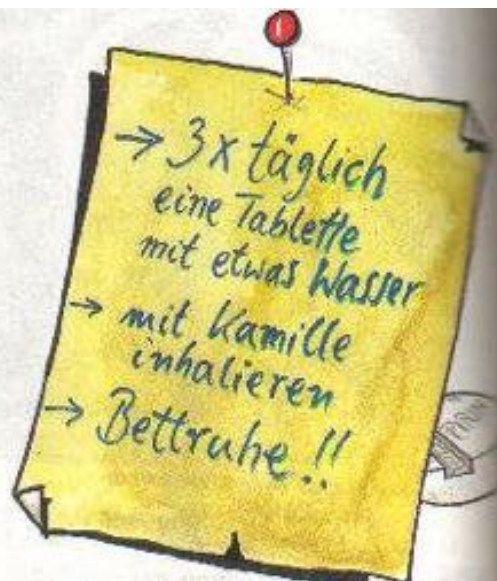 → 3x täglich
eine Tablette
mit etwas Wasser
→ mit Kamille
inhalieren
→ Bettruhe!!